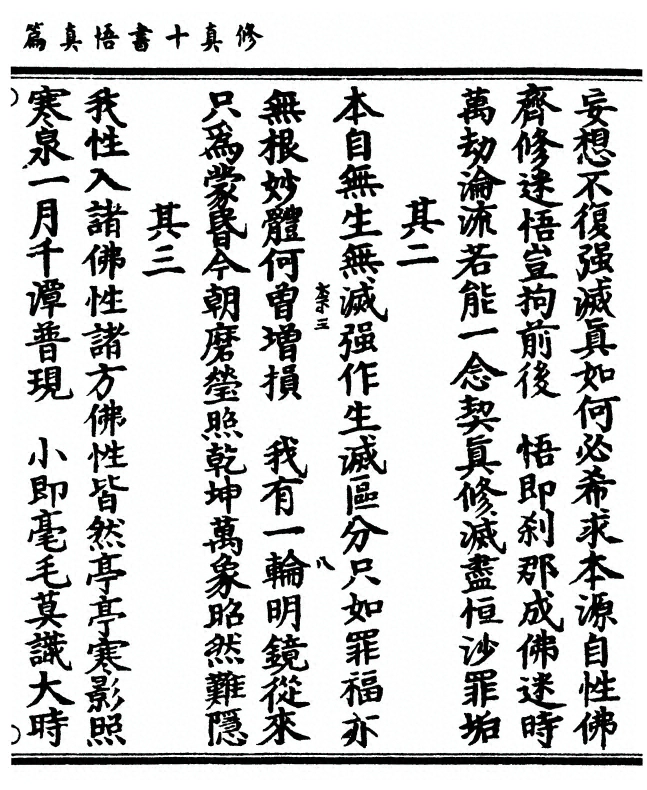 修真十書悟真篇
妄想不復强滅眞如何必希求本源自性佛
齊修迷悟豈拘前後　悟即刹那成佛迷時
萬劫淪流若能一念契眞修滅盡恒沙罪垢
其二
本自無生無滅强作生滅區分只如罪福亦
無根妙體何曾增損　我有一輪明鏡從來
只爲蒙昏今朝磨瑩照乾坤萬象昭然難隱
其三
我性入諸佛性諸方佛性皆然亭亭寒影照
寒泉一月千潭普現　小即毫毛莫識大時